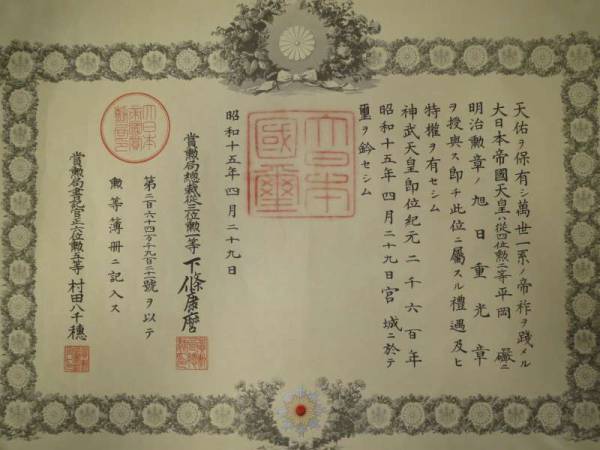 天佑ヲ保有シ萬世一系ノ帝祚ヲ踐メル
大日本帝國天皇ハ從四位勲二等平岡巖ニ
明治勲章ノ旭日重光章
ヲ授與ス即チ此位ニ屬スル禮遇及ヒ
特權ヲ有セシム
神武天皇即位紀元二千六百年
昭和十五年四月二十九日宮城ニ於テ
璽ヲ鈐セシム
大日本國璽
昭和十五年四月二十九日
賞勲局總裁從三位勲一等下條康麿
第二百六十四万千九百二十一號ヲ以テ
勲等簿冊ニ記入ス
賞勲局書記官正六位勲五等村田八千穗